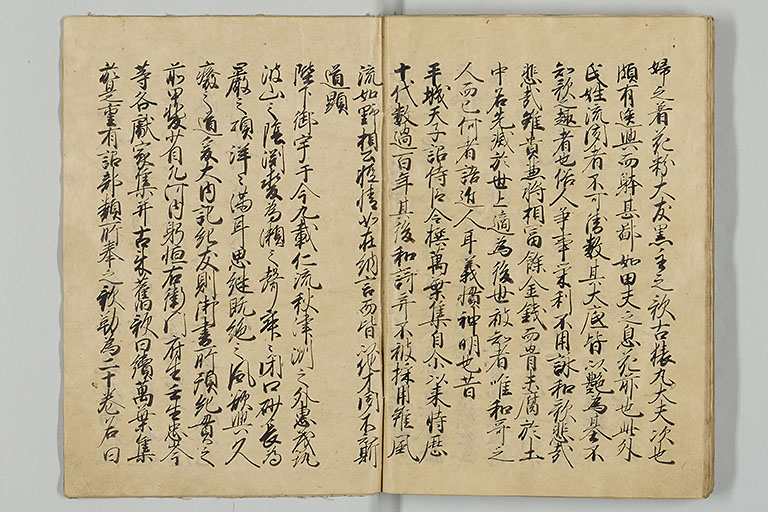 婦之着花粉大友黒主之歌古猿丸大夫次也
頗有逸興而躰甚鄙如田夫之息花前也此外
氏姓流聞者不可勝数其大底皆以艶為基不
知歌趣者也俗人争事栄利不用詠和歌悲哉
悲哉雖貴兼将相冨餘金銭而骨未腐於土
中名先滅於世上適為後世被知者唯和哥之
人而已何者語近人耳義慣神明也昔
平城天子詔侍臣令撰萬葉集自尒以来時歴
十代数過百年其後和謌弃不被採用雖風
流如野相公軽情如在納言而皆以他才聞不斯
道顕
陛下御宇于今九載仁流秋津洲之外恵茂筑
波山之陰淵変為瀬之聲寂々閉口砂長為
巌之頌洋々満耳思継既絶之風欲興久
廢之道爰大内記紀友則御書所預紀貫之
前甲斐少目凡河内躬恒右衛門府生壬生忠岑
等各献家集并古来舊歌曰續萬葉集
於是重有詔部類所奉之歌勒為二十巻名曰